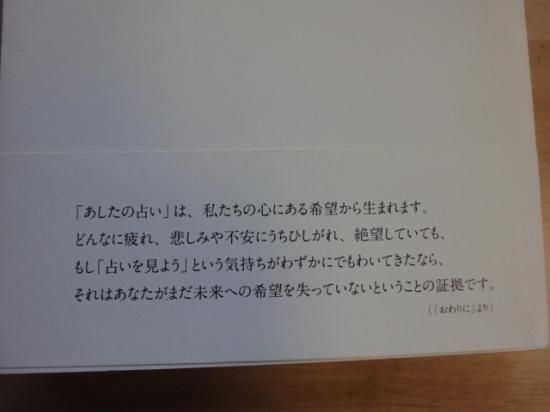 「あしたの占い」は、私たちの心にある希望から生まれます。
どんなに疲れ、悲しみや不安にうちひしがれ、絶望していても、
もし「占いを見よう」という気持ちがわずかにでもわいてきたなら、
それはあなたがまだ未来への希望を失っていないということの証拠です。
（「おわりに」より）